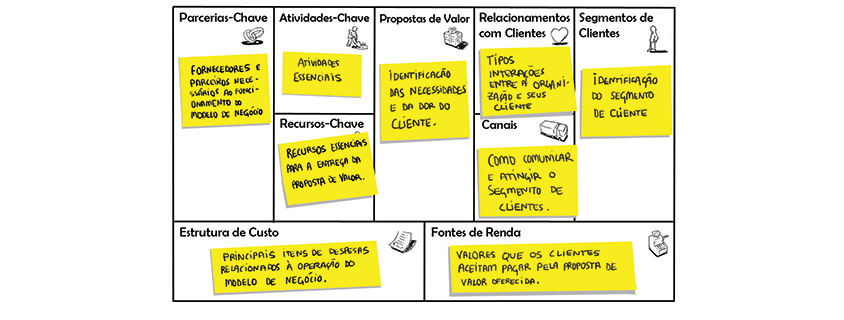 Parcerias-Chave
FORNECEDORES E
PARCEIROS NECE-
SSÁRIOS AO FUNCI-
ONAMENTO DO
MODELO DE NEGÓCIO
Atividades-Chave
ATIVIDADES
ESSENCIAIS
Recursos-Chave
RECURSOS ESSENCIAIS
PARA A ENTREGA DA
PROPOSTA DE VALOR.
Propostas de Valor
IDENTIFICAÇÃO
DAS NECESSIDADES
E DA DOR DO
CLIENTE.
Relacionamentos
com Clientes
TIPOS
INTERAÇÕES
ENTRE A ORGANI-
ZAÇÃO E SEUS
CLIENTE
Canais
COMO COMUNICAR
E ATINGIR O
SEGMENTO DE
CLIENTES.
Segmentos de
Clientes
IDENTIFICAÇÃO
DO SEGMENTO
DE CLIENTE
Estrutura de Custo
PRINCIPAIS ITENS DE DESPESAS
RELACIONADOS À OPERAÇÃO DO
MODELO DE NEGÓCIO.
Fontes de Renda
VALORES QUE OS CLIENTES
ACEITAM PAGAR PELA PROPOSTA DE
VALOR OFERECIDA.